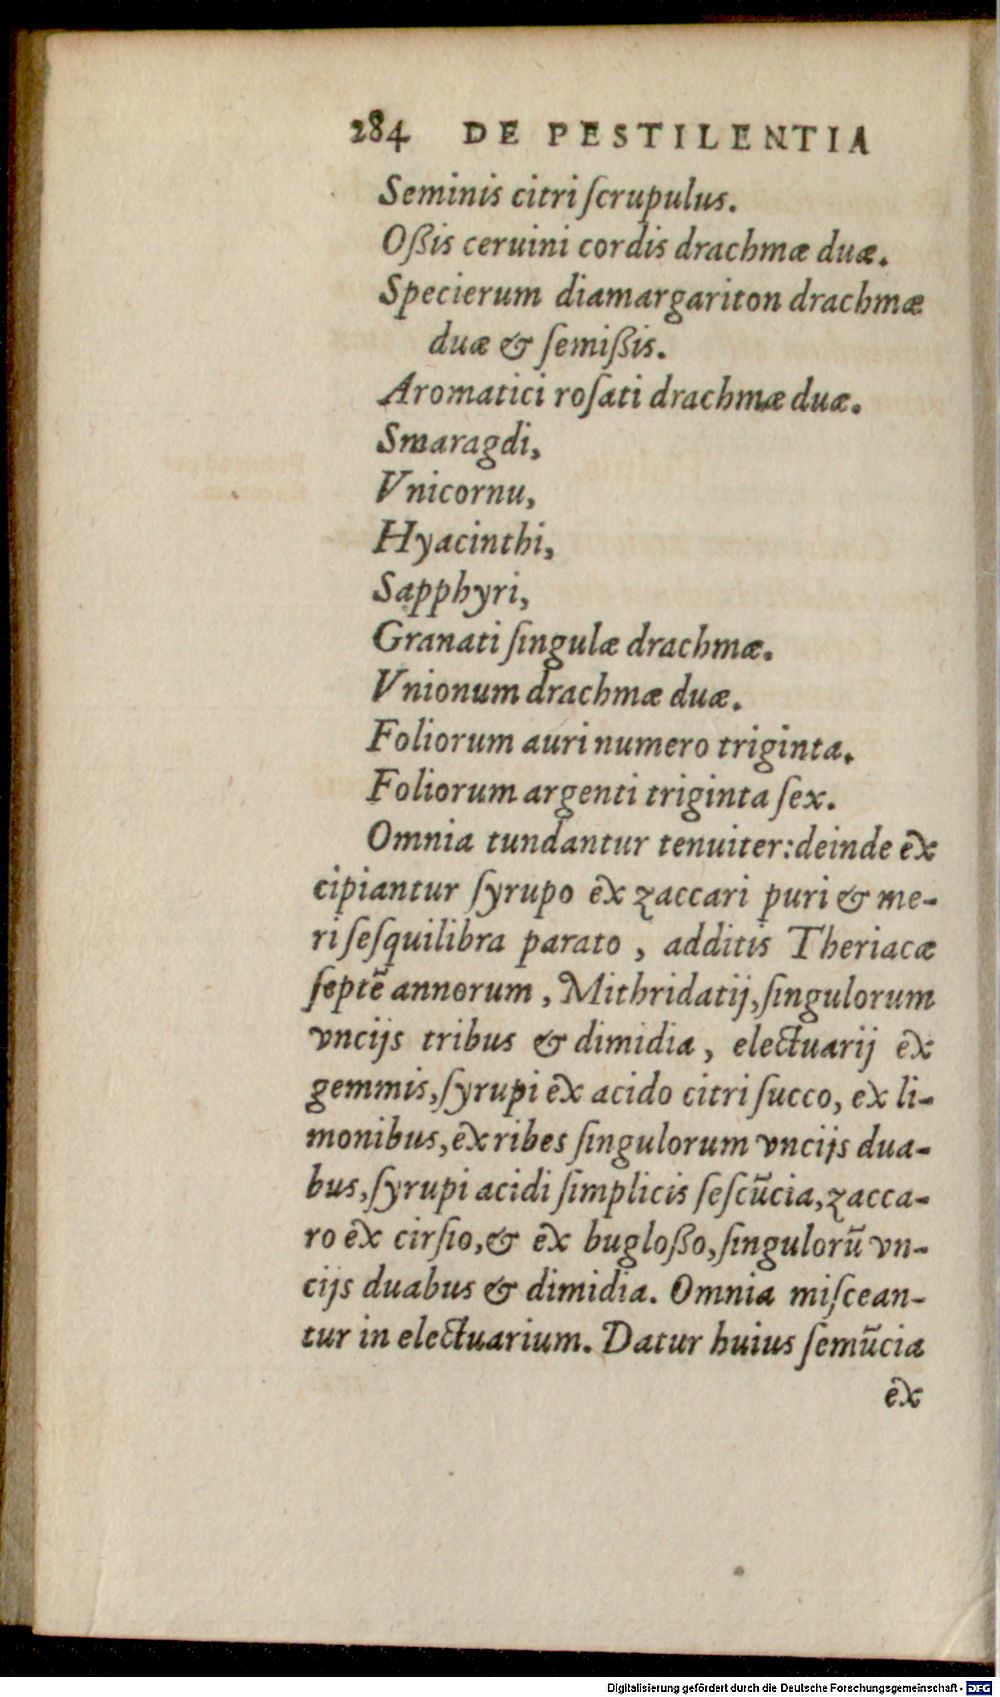 284 DE PESTILENTIA
Seminis citri ſcrupulus.
Oßis ceruini cordis drachmæ duæ.
Specierum diamargariton drachmæ
duæ & ſemißis.
Aromatici roſati drachmæ duæ.
Smaragdi,
Vnicornu,
Hyacinthi,
Sapphyri,
Granati ſingulæ drachmæ.
Vnionum drachmæ duæ.
Foliorum auri numero triginta.
Foliorum argenti triginta ſex.
Omnia tundantur tenuiter: deinde ex
cipiantur ſyrupo ex zaccari puri & me-
ri ſeſquilibra parato, additis Theriacæ
ſeptē annorum, Mithridatij, ſingulorum
vncijs tribus & dimidia, electuarij ex
gemmis, ſyrupi ex acido citri ſucco, ex li-
monibus, ex ribes ſingulorum vncijs dua-
bus, ſyrupi acidi ſimplicis ſeſcūcia, zacca-
ro ex cirſio, & ex bugloßo, ſingulorū vn-
cijs duabus & dimidia. Omnia miſcean-
tur in electuarium. Datur huius ſemūcia
ex
Digitalisierung gefördert durch die Deutsche Forschungsgemeinschaft - DFG